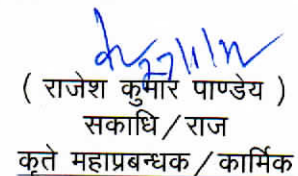 ( राजेश कुमार पाण्डेय )
सकाधि / राज
कृते महाप्रबन्धक / कार्मिक